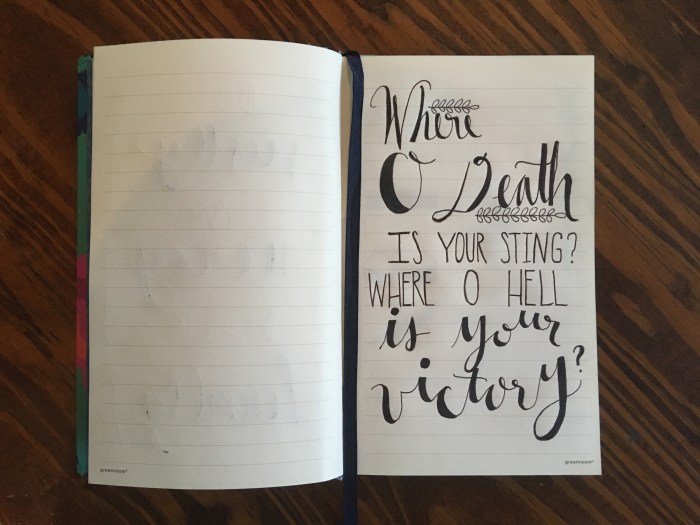 Where
O Death
IS YOUR STING?
WHERE O HELL
is your
victory?
greenroom®
greenroom®